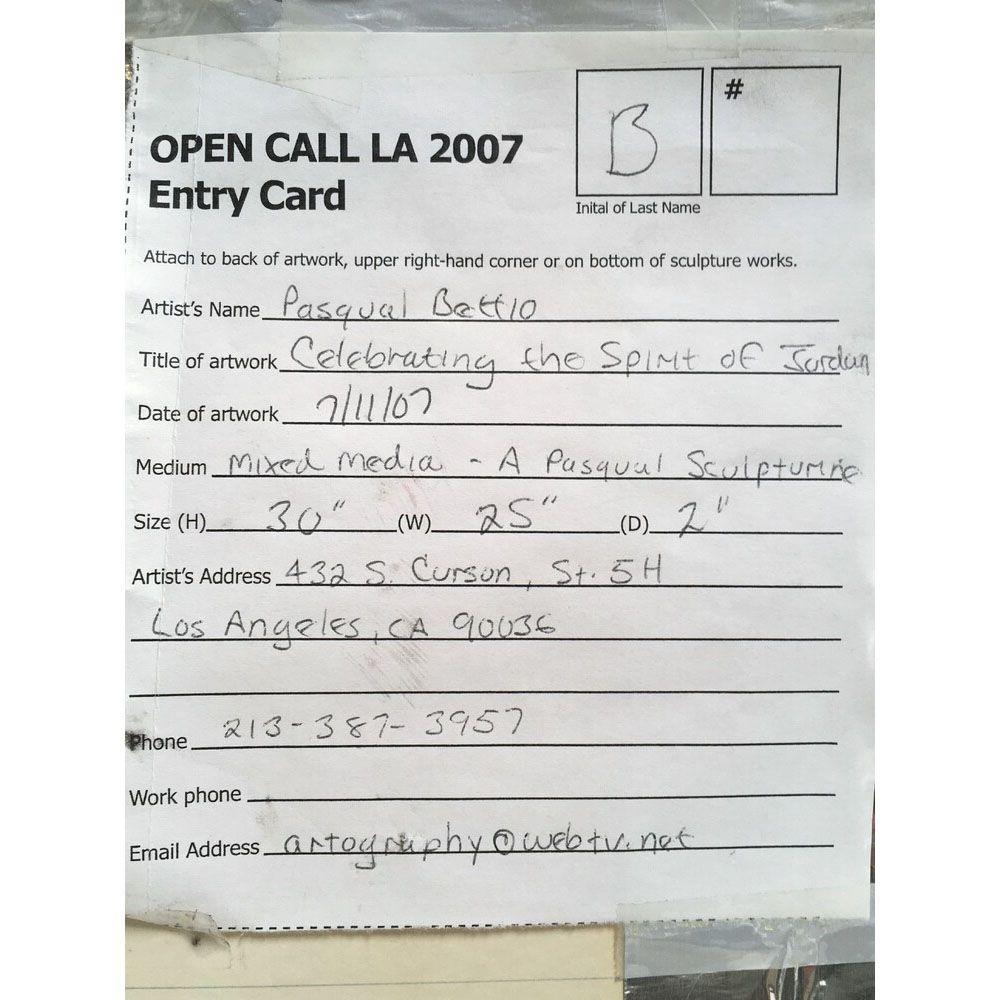 B #
OPEN CALL LA 2007
Entry Card
Inital of Last Name
Attach to back of artwork, upper right-hand corner or on bottom of sculpture works.
Artist's Name Pasqual Bettio
Title of artwork Celebrating the Spirit of Jordan
Date of artwork 7/11/07
Medium Mixed Media - A Pasqual Sculpturine
Size (H) 30" (W) 25" (D) 2"
Artist's Address 432 S. Curson, St. 5H
Los Angeles, CA 90036
Phone 213-387-3957
Work phone
Email Address artography@webtv.net